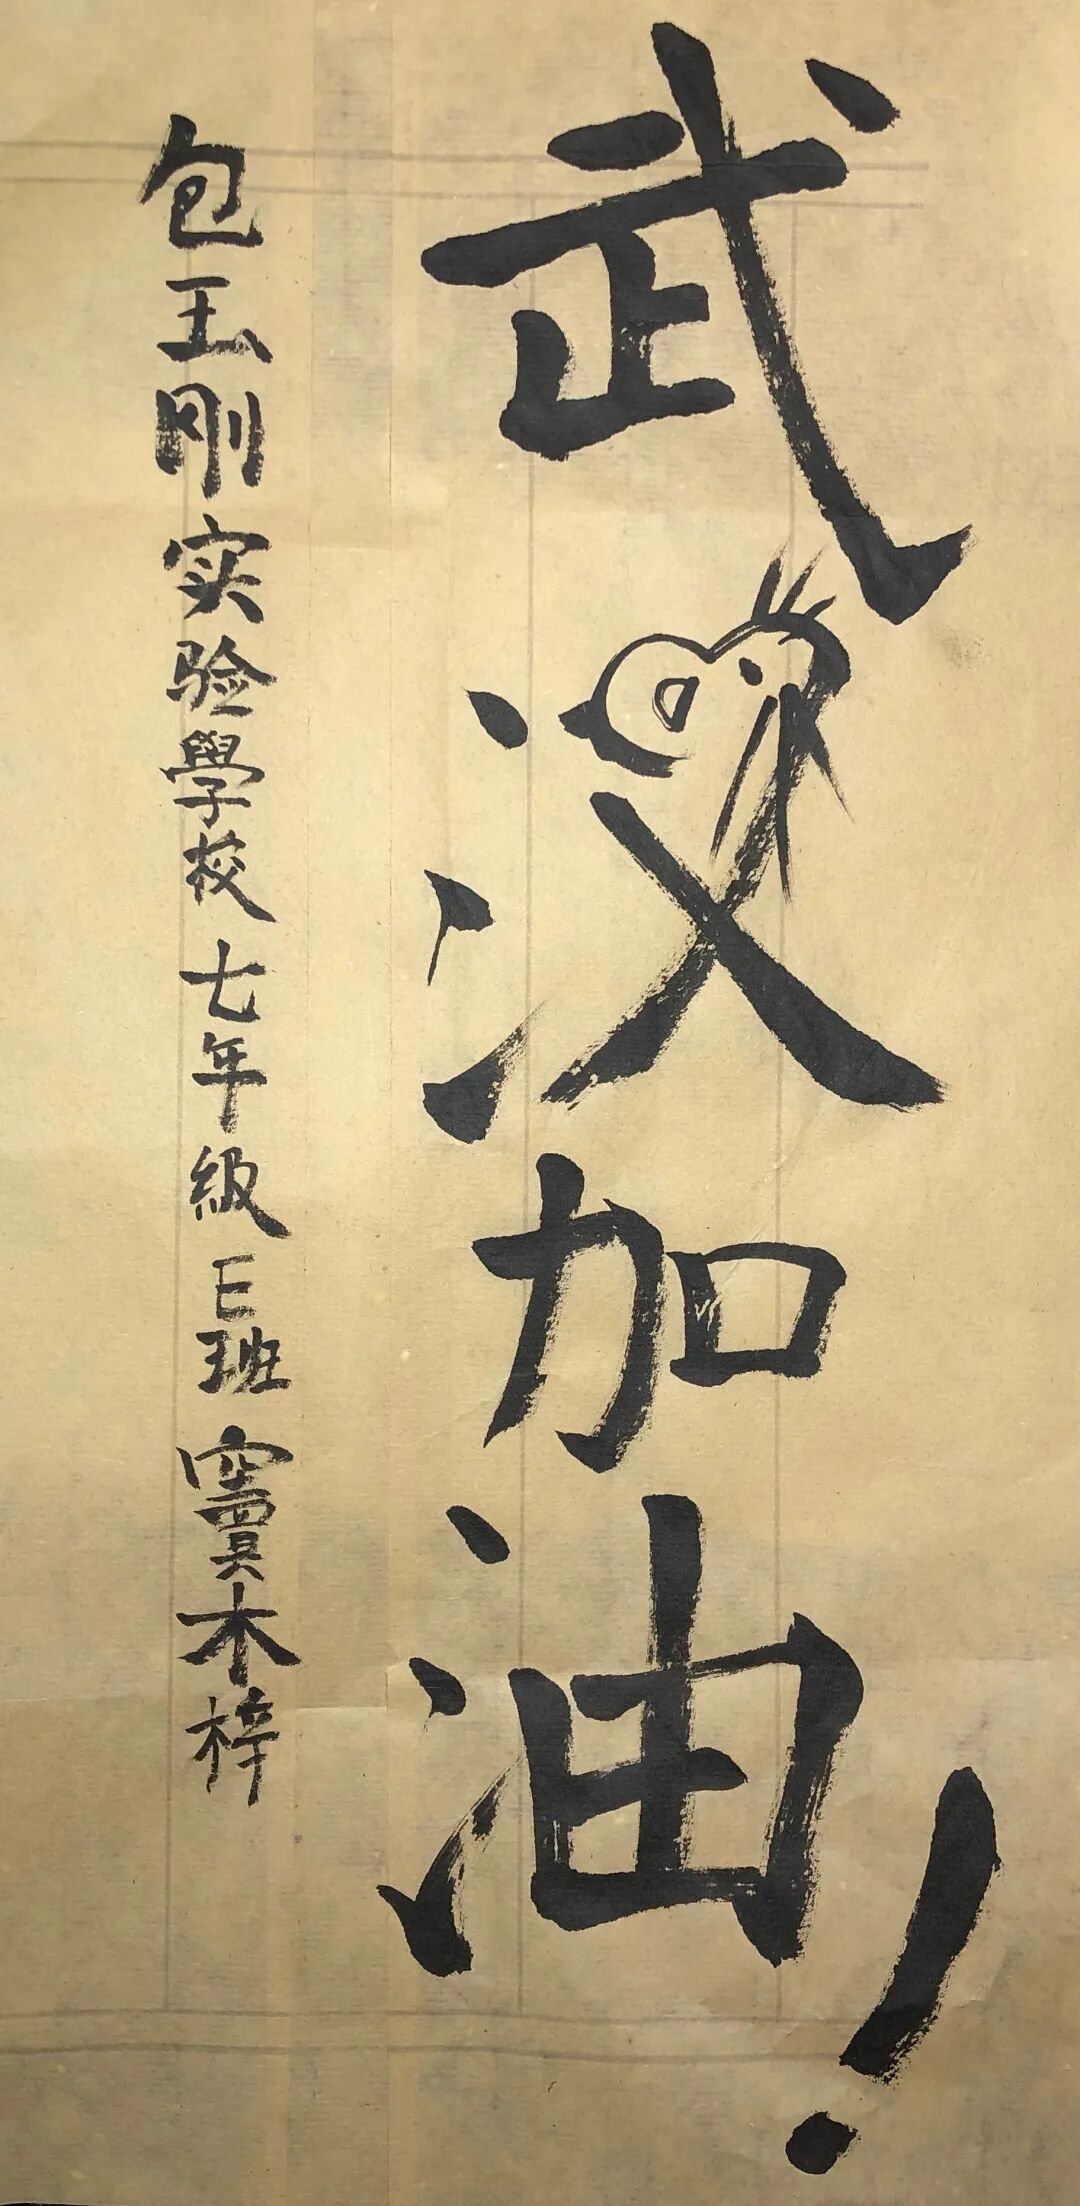 武汉加油!
包玉刚实验學校七年級E班 竇木梓